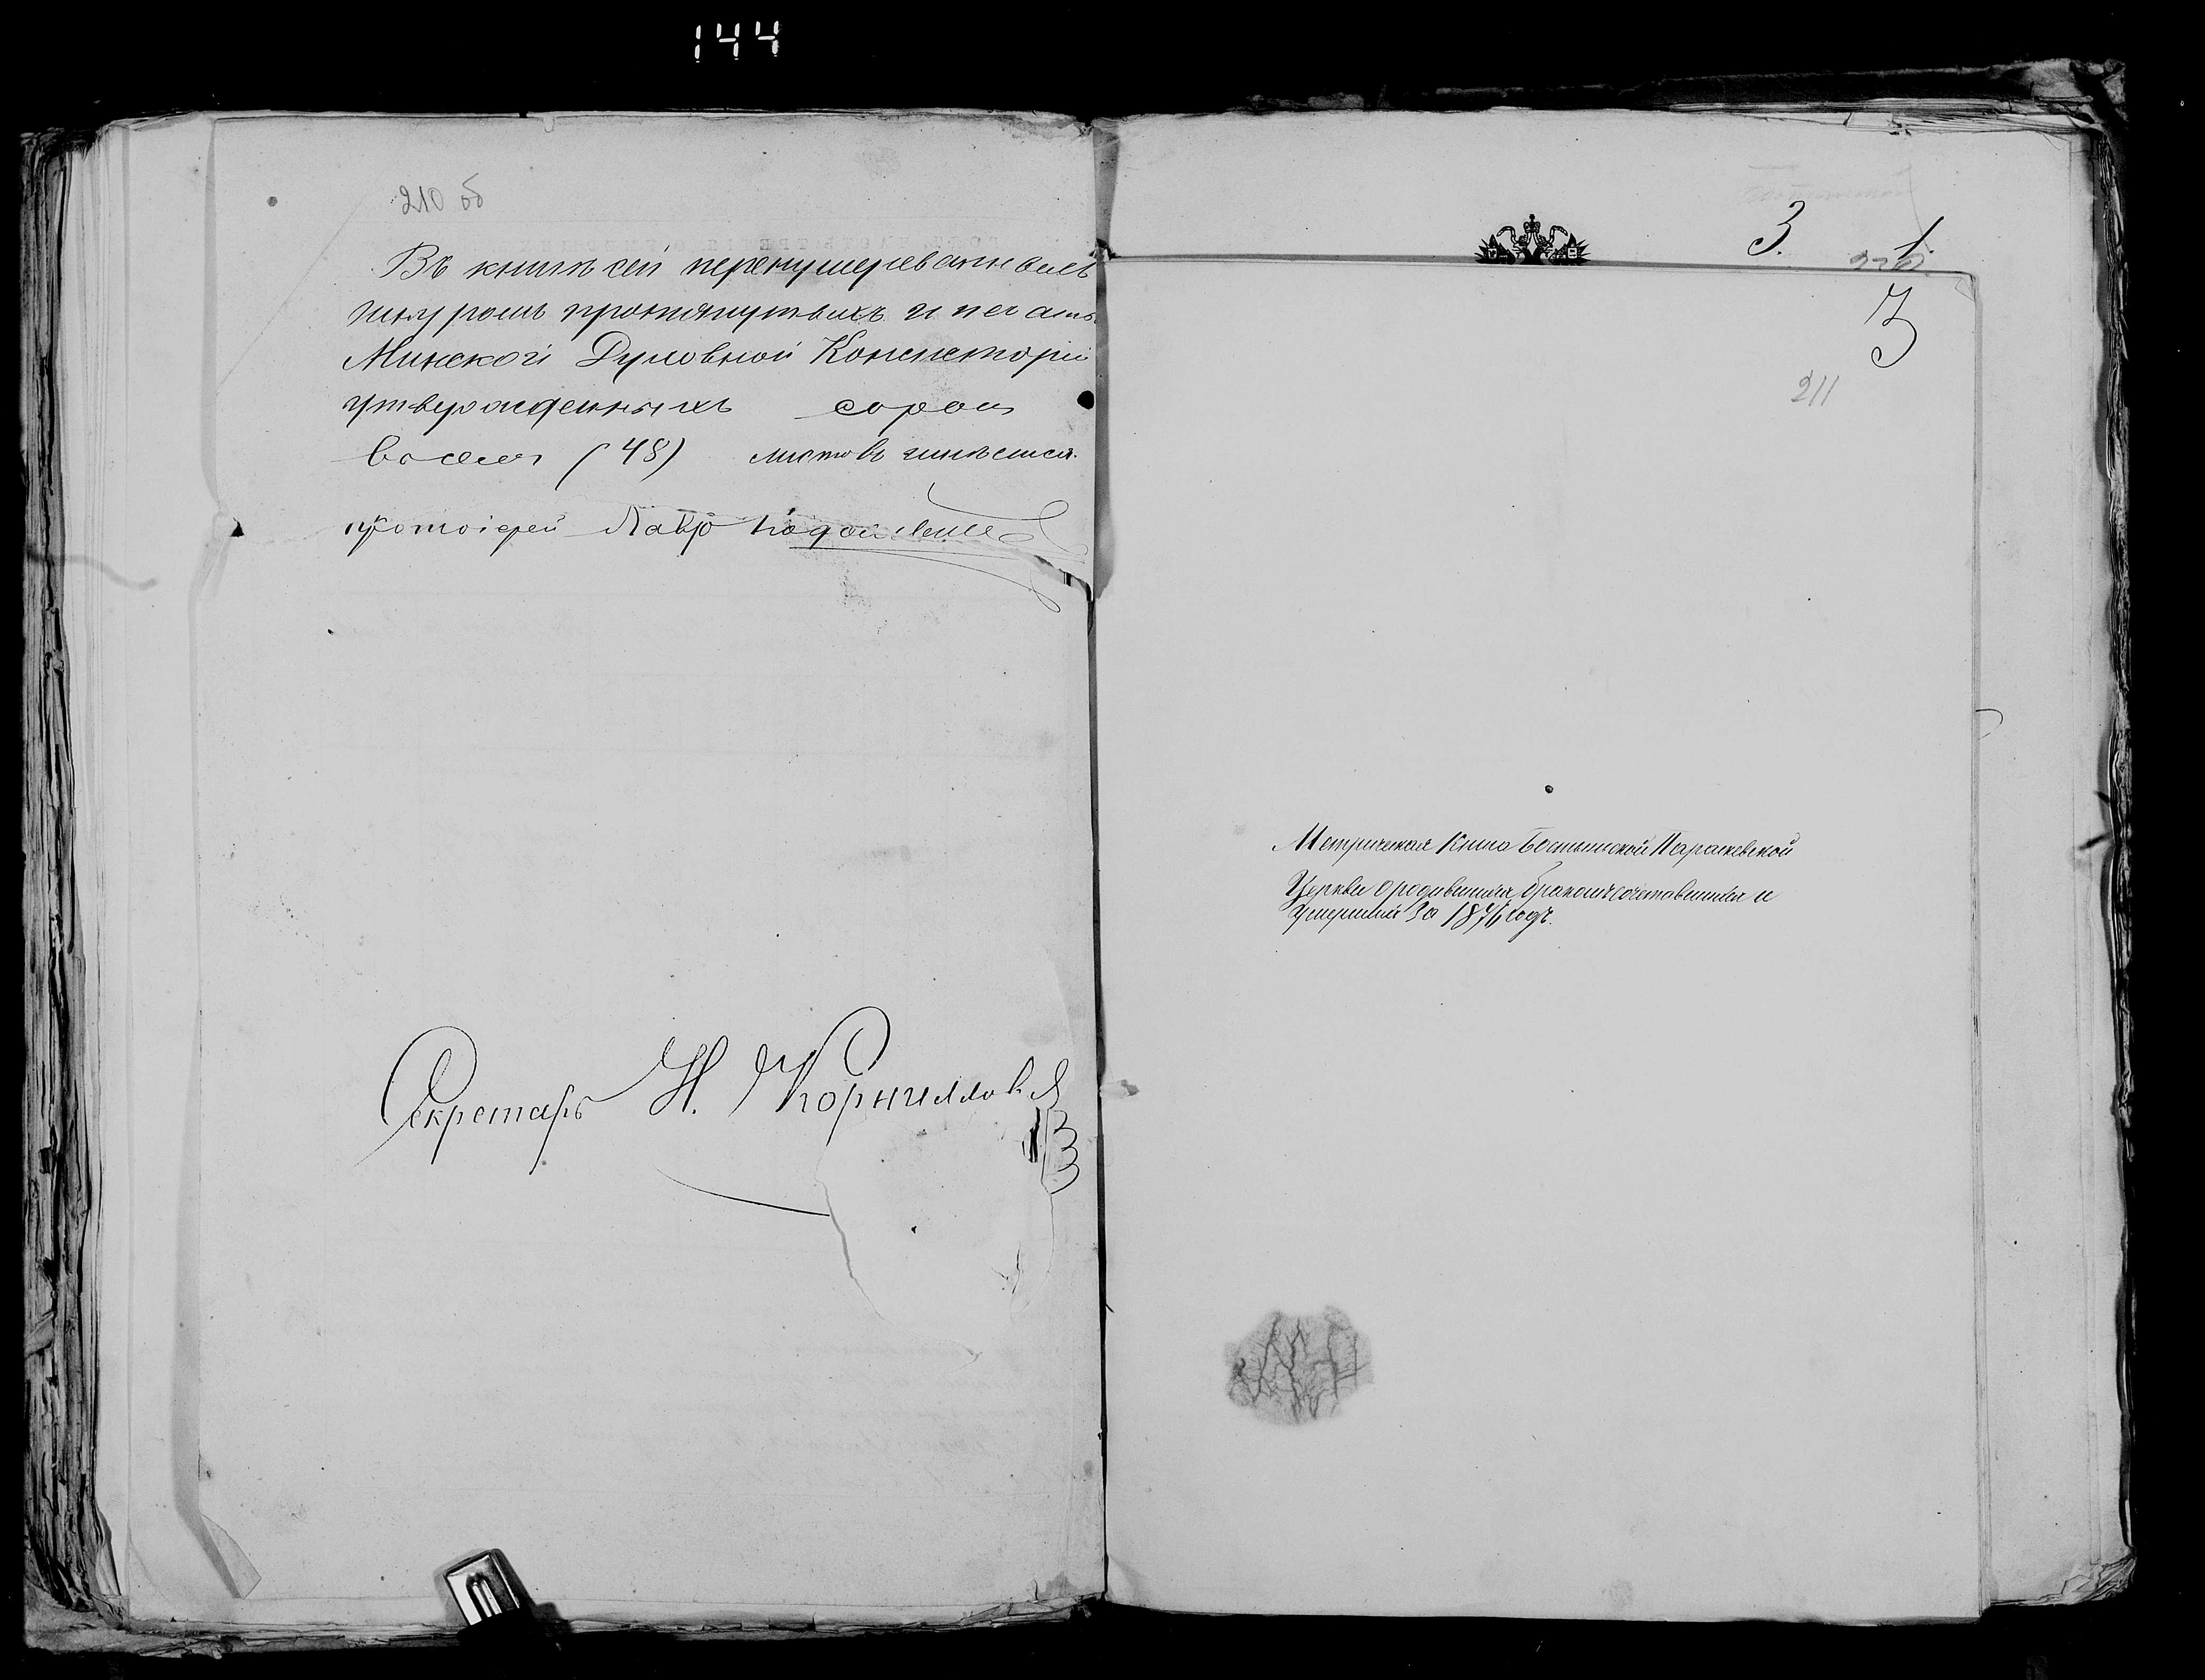 144
210 об
Въ книгѣ сей перенумерованныхъ
шнуромъ протянутыхъ и печатью
Минской Духовной Консисторіи
утвержденныхъ сорокъ
восемь (48) листовъ имѣется.
протоіерей Лавръ
Секретарь Н. Корниллов
3. 1.
3
211
Метрическая Книга Бостынской Параскевской
Церкви о родившихся, бракомъ сочетавшихся и
Умершихъ за 1876 годъ.